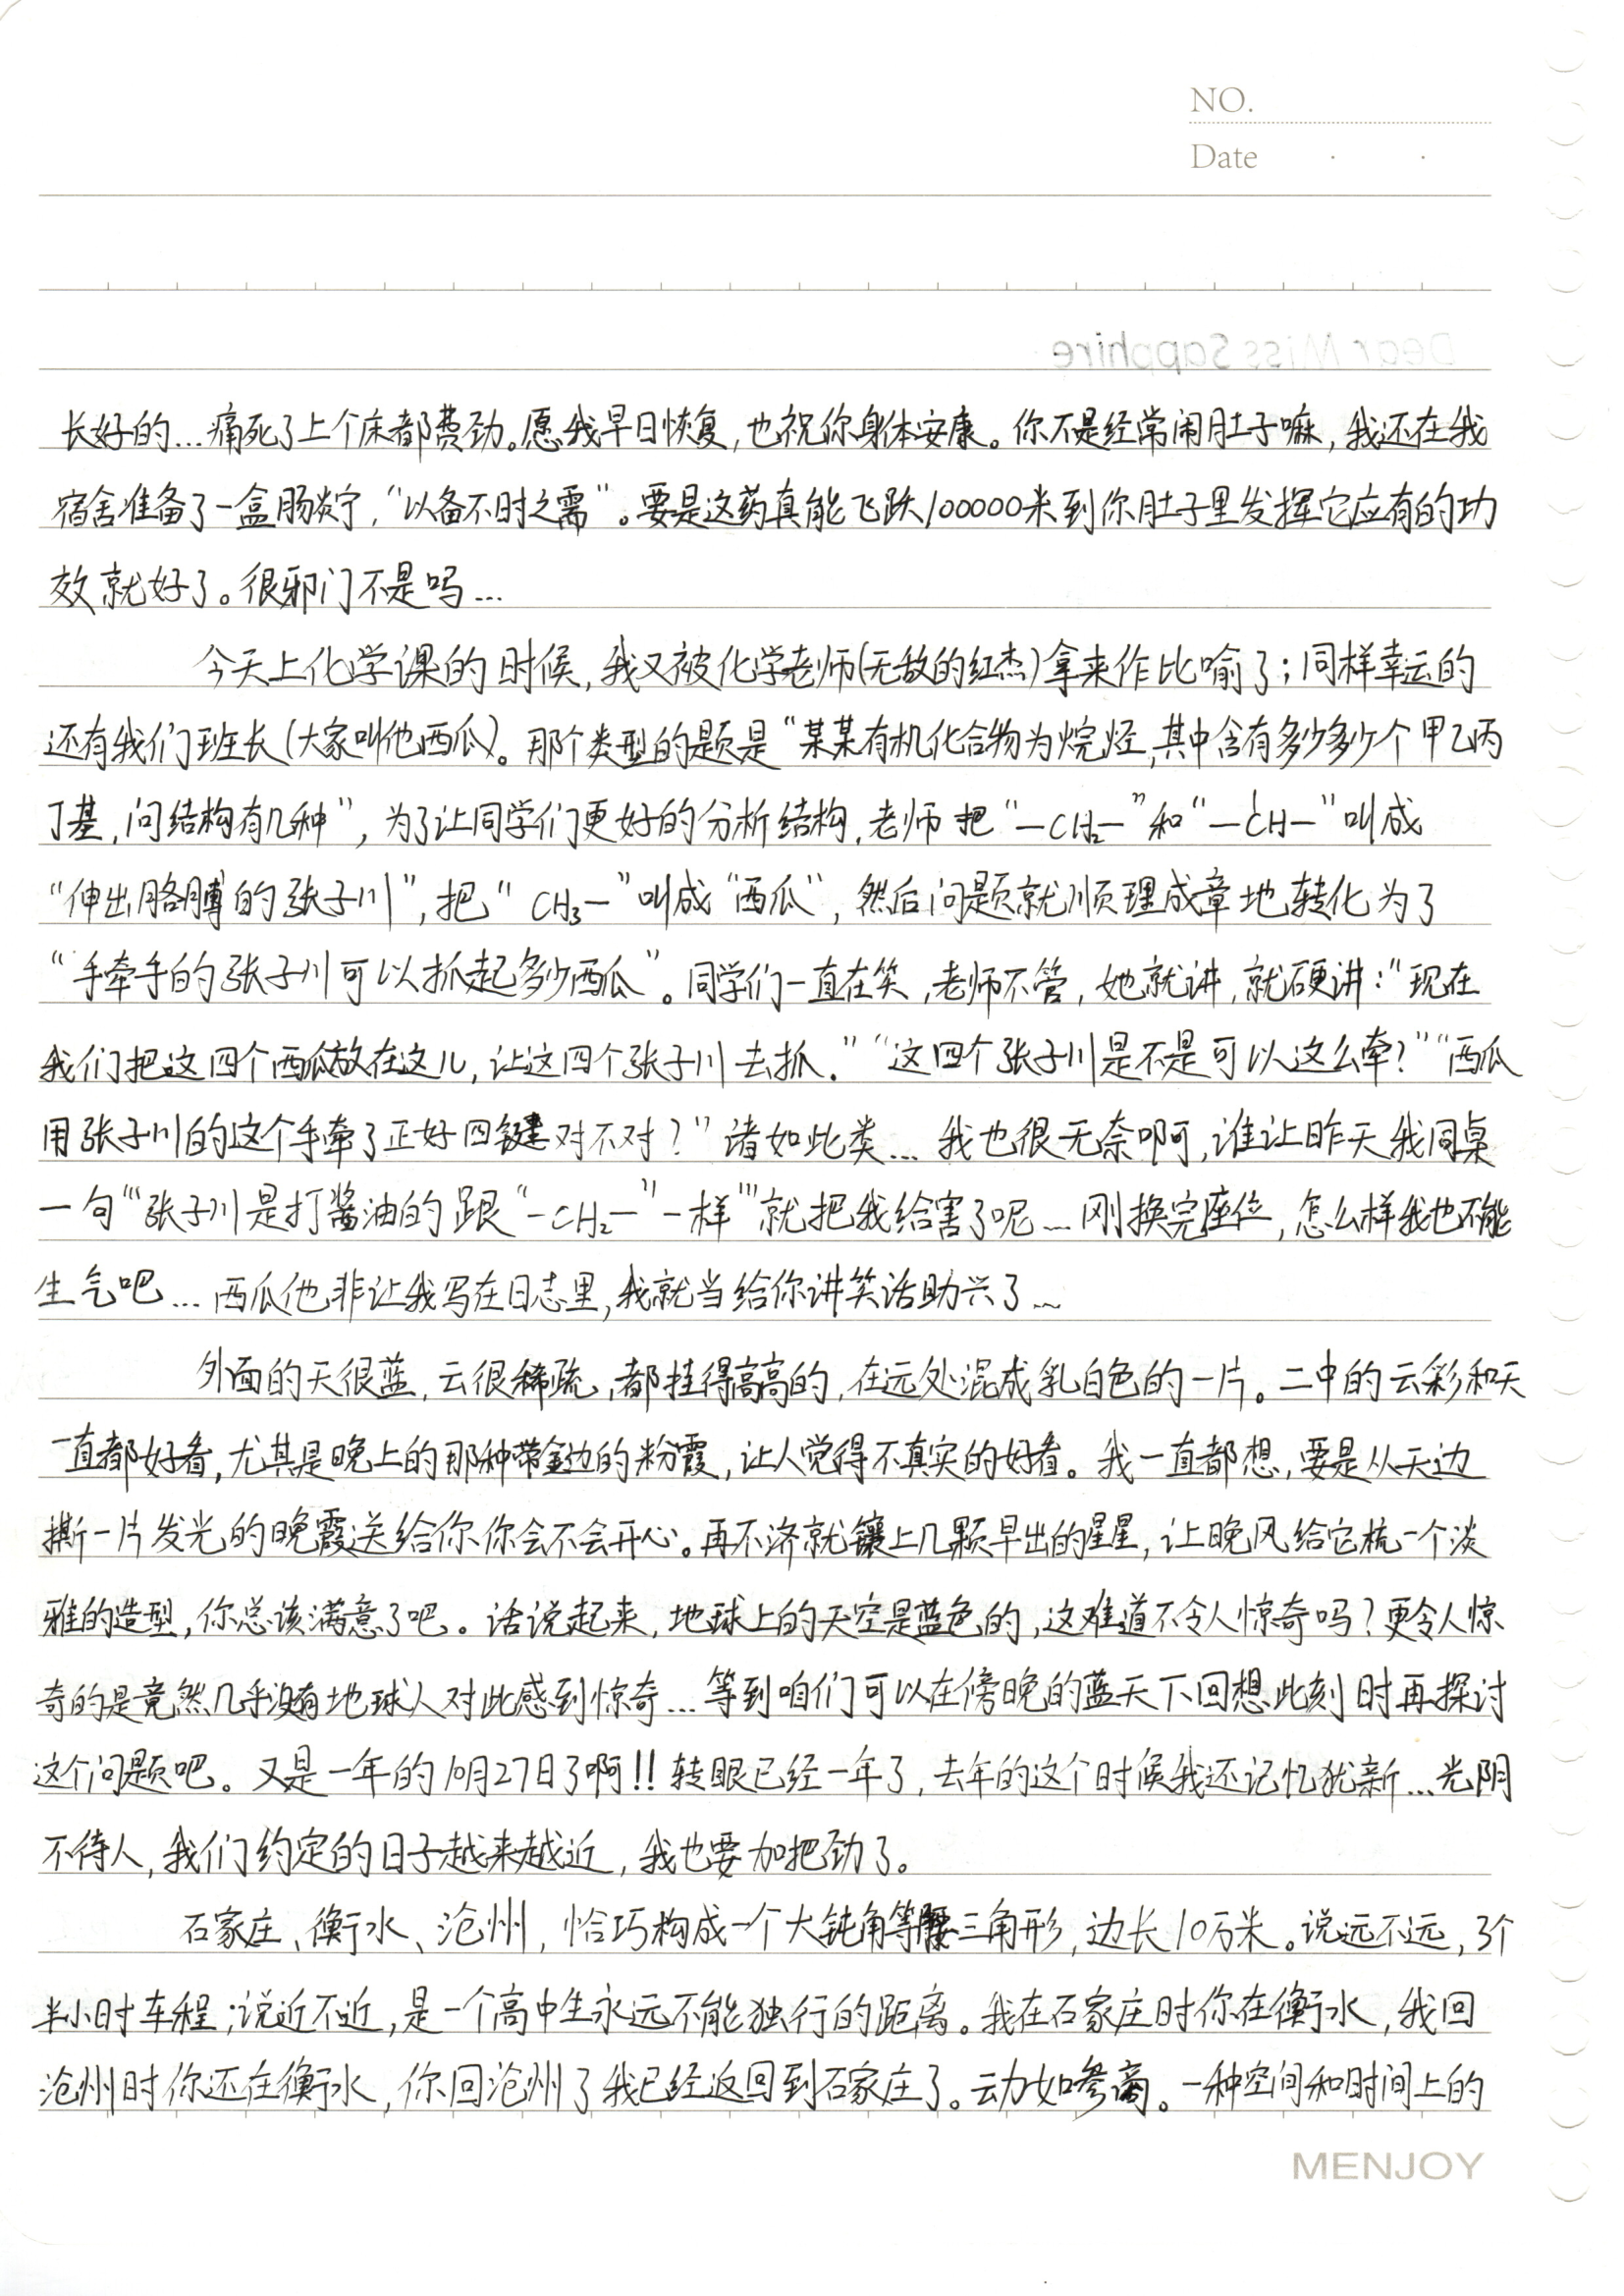 NO.
Date
Dear Miss Sapphire
长好的…痛死了上个床都费劲。愿我早日恢复，也祝你身体安康。你不是经常闹肚子嘛，我还在我
宿舍准备了一盒肠炎宁，“以备不时之需”。要是这药真能飞跃100000米到你肚子里发挥它应有的功
效就好了。很邪门不是吗…
今天上化学课的时候，我又被化学老师(无敌的红杰)拿来作比喻了；同样幸运的
还有我们班长(大家叫他西瓜)。那个类型的题是“某某有机化合物为烷烃，其中含有多少多少个甲乙丙
丁基，问结构有几种”，为了让同学们更好的分析结构，老师把“—CH₂—”和“—CH—”叫成
“伸出胳膊的张子川”，把“CH₃—”叫成“西瓜”，然后问题就顺理成章地转化为了
“手牵手的张子川可以抓起多少西瓜”。同学们一直在笑，老师不管，她就讲，就硬讲：“现在
我们把这四个西瓜放在这儿，让这四个张子川去抓.”“这四个张子川是不是可以这么牵？”“西瓜
用张子川的这个手牵了正好四键对不对？”诸如此类…我也很无奈啊，谁让昨天我同桌
一句“‘张子川是打酱油的跟“—CH₂—”一样’”就把我给害了呢…刚换完座位，怎么样我也不能
生气吧…西瓜他非让我写在日志里，我就当给你讲笑话助兴了~
外面的天很蓝，云很稀疏，都挂得高高的，在远处混成乳白色的一片。二中的云彩和天
一直都好看，尤其是晚上的那种带金边的粉霞，让人觉得不真实的好看。我一直都想，要是从天边
撕一片发光的晚霞送给你你会不会开心。再不济就镶上几颗早出的星星，让晚风给它梳一个淡
雅的造型，你总该满意了吧。话说起来，地球上的天空是蓝色的，这难道不令人惊奇吗？更令人惊
奇的是竟然几乎没有地球人对此感到惊奇…等到咱们可以在傍晚的蓝天下回想此刻时再探讨
这个问题吧。又是一年的10月27日了啊!!转眼已经一年了，去年的这个时候我还记忆犹新…光阴
不待人，我们约定的日子越来越近，我也要加把劲了。
石家庄、衡水、沧州，恰巧构成一个大钝角等腰三角形，边长10万米。说远不远，3个
半小时车程；说近不近，是一个高中生永远不能独行的距离。我在石家庄时你在衡水，我回
沧州时你还在衡水，你回沧州了我已经返回到石家庄了。动如参商。一种空间和时间上的
MENJOY